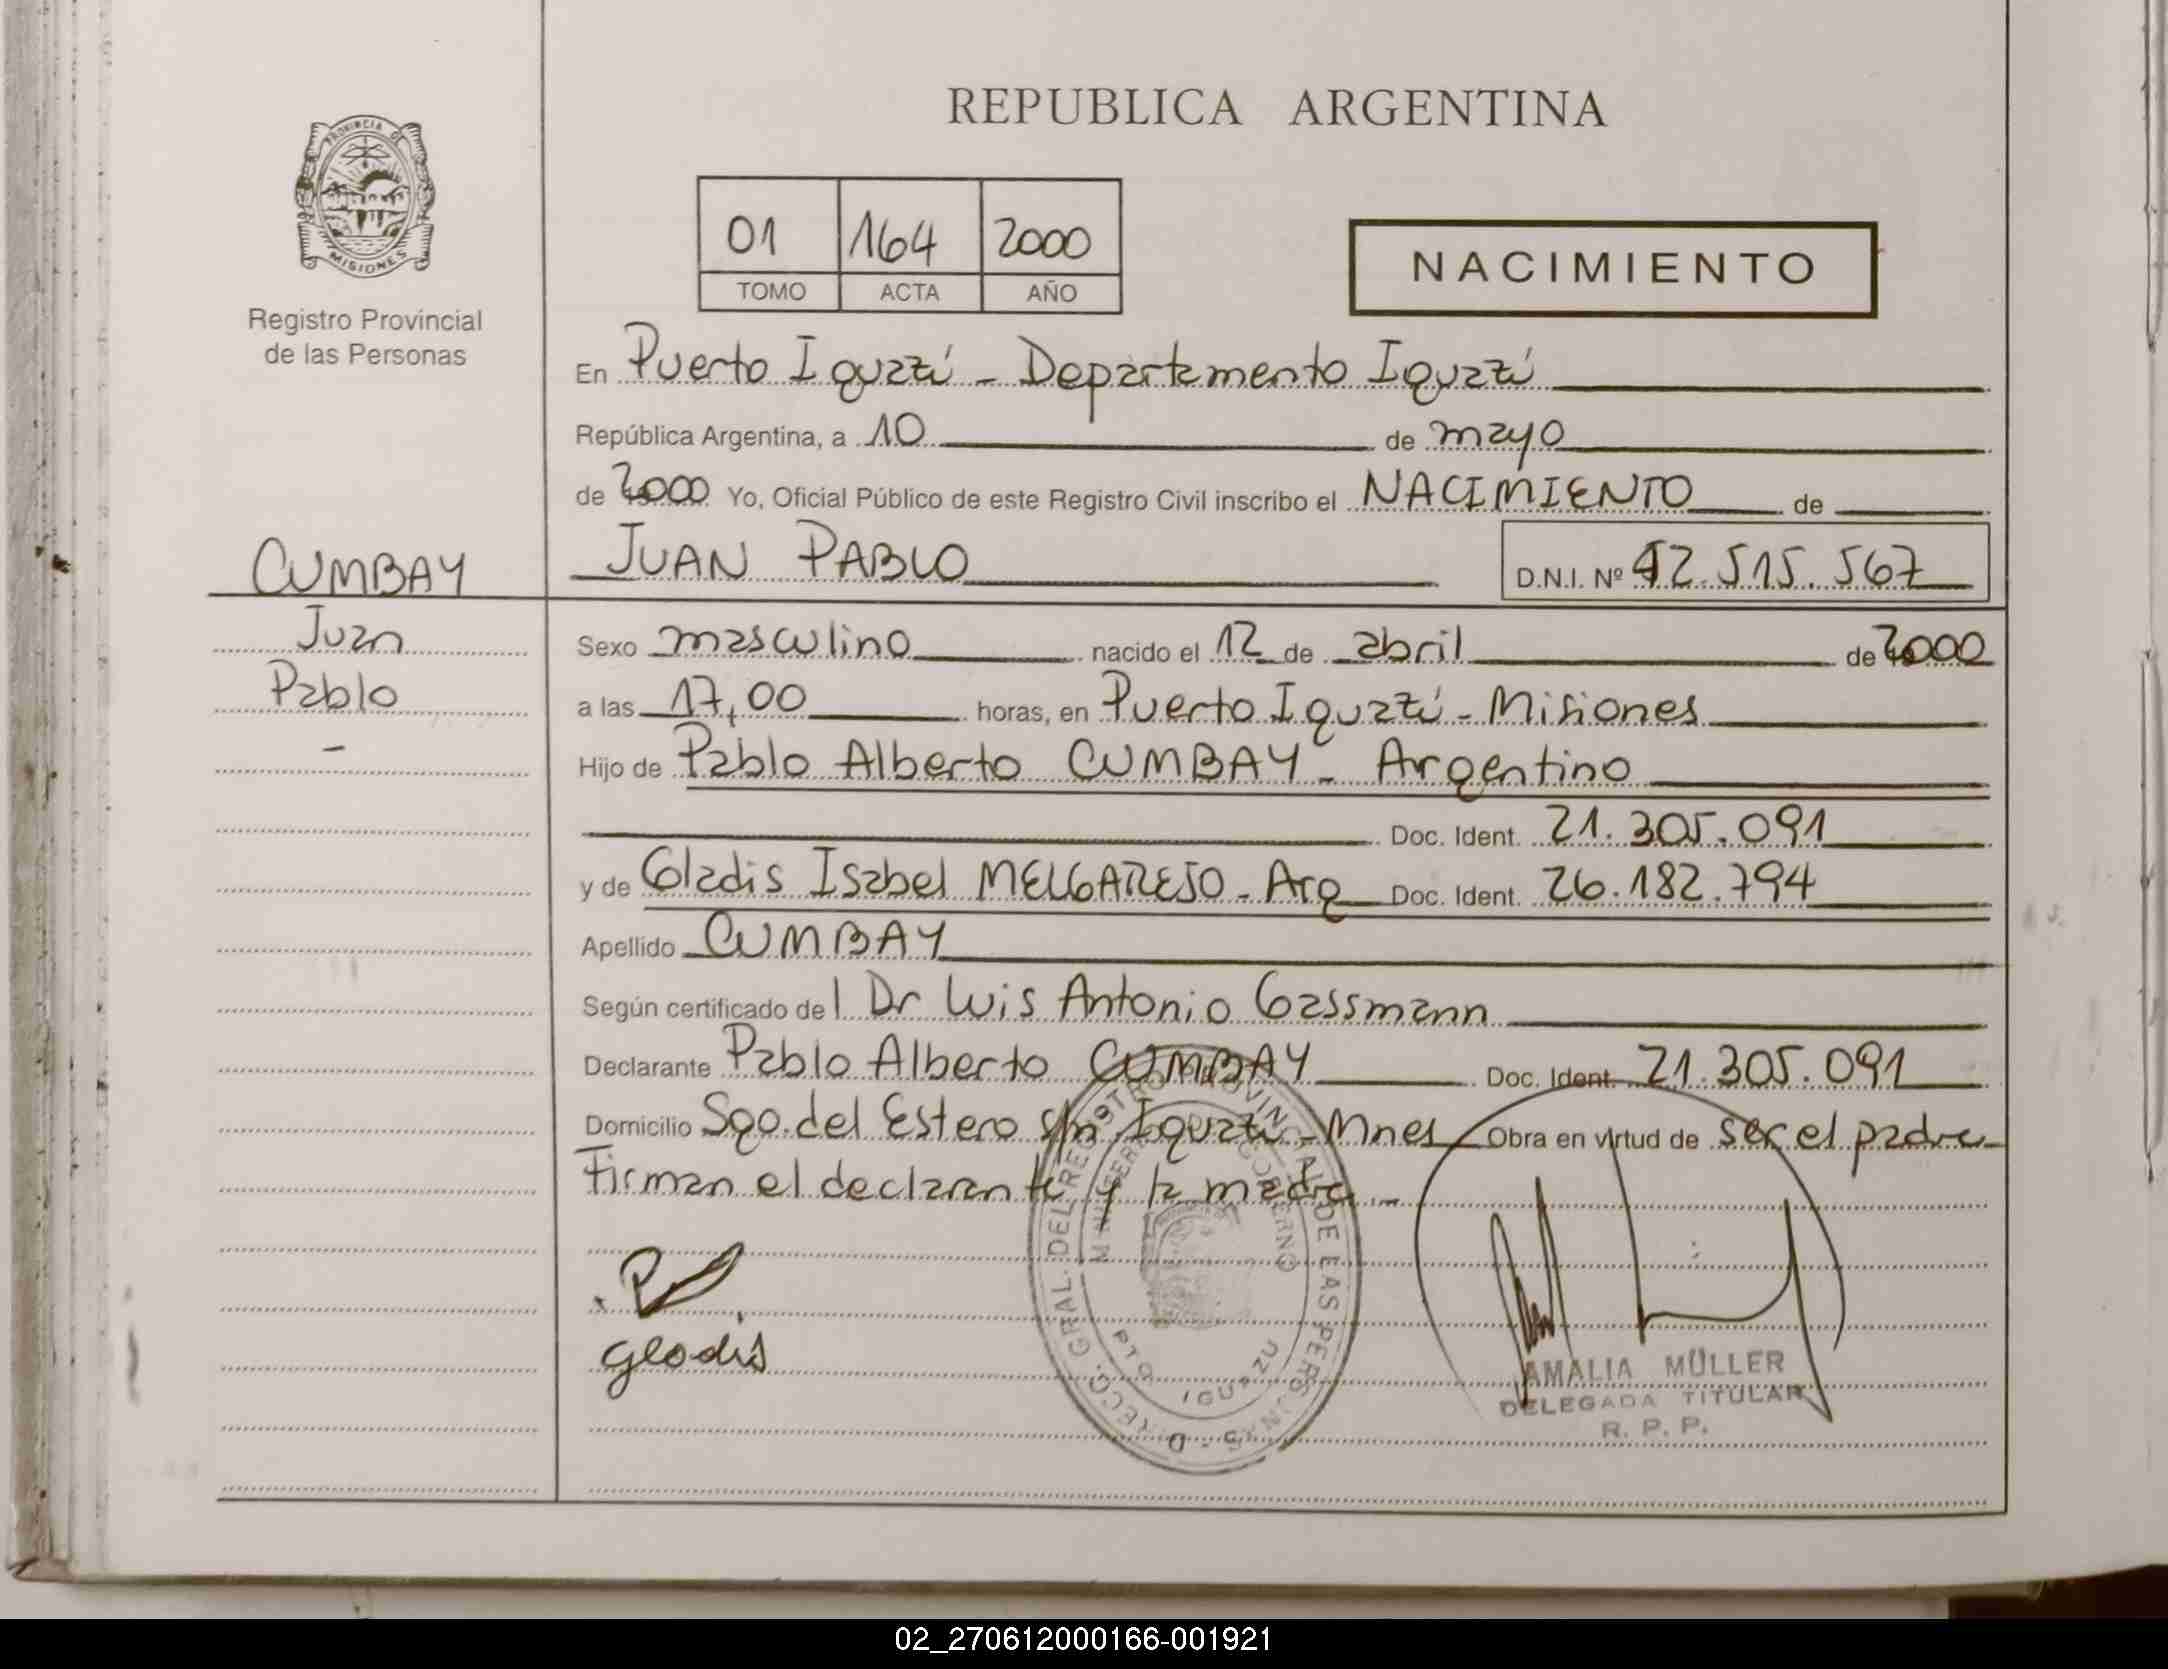 REPUBLICA ARGENTINA
PROVINCIA DE
MISIONES
Registro Provincial
de las Personas
01 164 2000
TOMO ACTA AÑO
NACIMIENTO
En Puerto Iguazú - Departamento Iguazú
República Argentina, a 10 de mayo
de 2000 Yo, Oficial Público de este Registro Civil inscribo el NACIMIENTO de
CUMBAY
JUAN PABLO
D.N.I. Nº 42.515.567
Juan
Pablo
-
Sexo masculino nacido el 12 de abril de 2000
a las 17,00 horas, en Puerto Iguazú - Misiones
Hijo de Pablo Alberto CUMBAY - Argentino
Doc. Ident. 21.305.091
y de Gladis Isabel MELGAREJO - Arg Doc. Ident. 26.182.794
Apellido CUMBAY
Según certificado del Dr Luis Antonio Gassmann
Declarante Pablo Alberto CUMBAY Doc. Ident. 21.305.091
Domicilio Sgo. del Estero s/n Iguazú - Mnes Obra en virtud de ser el padre
Firman el declarante y la madre -
gladis
DIRECC. GRAL. DEL REGISTRO PROVINCIAL DE LAS PERSONAS
MINISTERIO GOBIERNO
PTO IGUAZU
AMALIA MÜLLER
DELEGADA TITULAR
R. P. P.
02_270612000166-001921